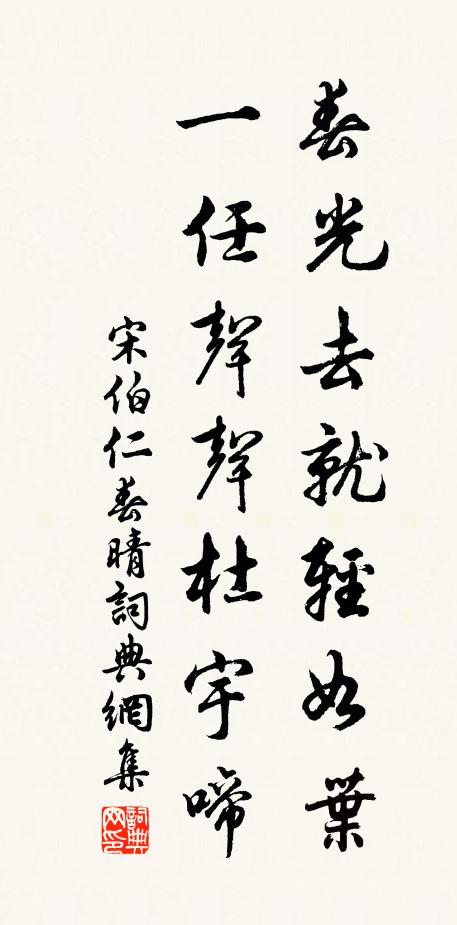 春光去就輕如葉
一任聲聲杜宇啼
宋伯仁春晴詞典網集
詞典
网印